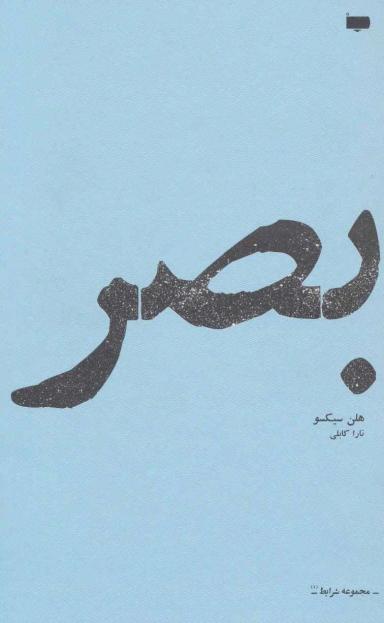 بصر
هلن سیکسو
تارا کابلی
ـ مجموعه شرایط (۱) ـ